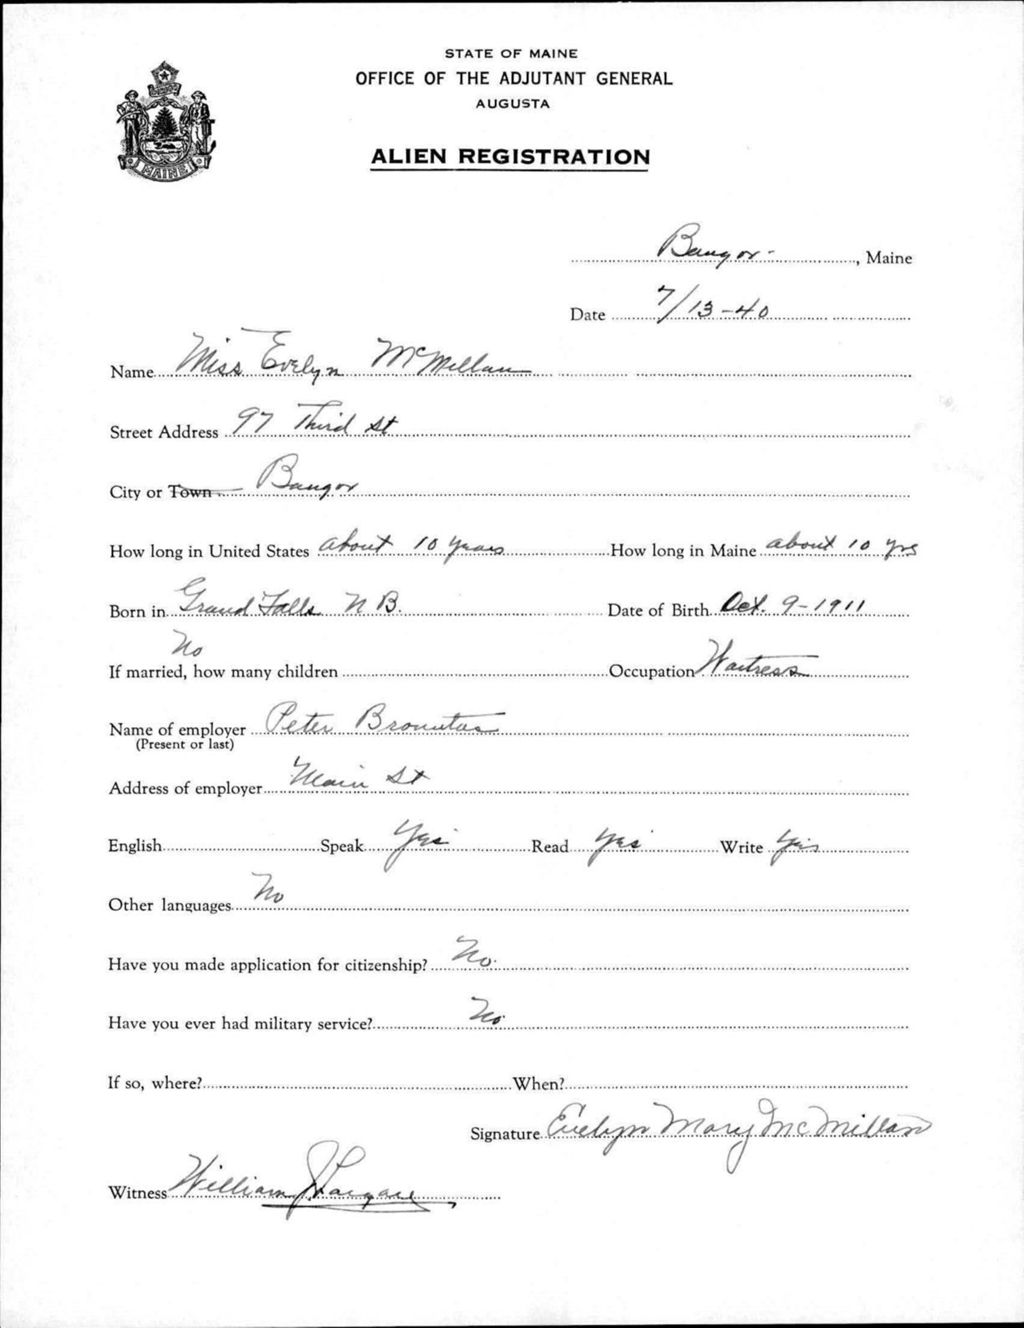 STATE OF MAINE
OFFICE OF THE ADJUTANT GENERAL
AUGUSTA
ALIEN REGISTRATION
MAINE
Bangor, Maine
Date 7/13-40
Name Miss Evelyn McMillan
Street Address 97 Third St
City or Town Bangor
How long in United States about 10 years How long in Maine about 10 yrs
Born in Grand Falls N B. Date of Birth Oct. 9-1911
No
If married, how many children Occupation Waitress
Name of employer Peter Brountas
(Present or last)
Address of employer Main St
English Speak Yes Read Yes Write Yes
Other languages No
Have you made application for citizenship? No.
Have you ever had military service? No.
If so, where? When?
Signature Evelyn Mary McMillan
Witness William